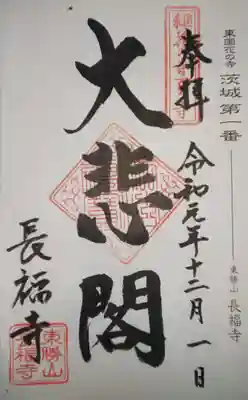 東国花の寺
茨城第一番
東勝山 長福寺
奉拝
令和元年十二月一日
大悲閣
長福寺
東勝山
長福寺